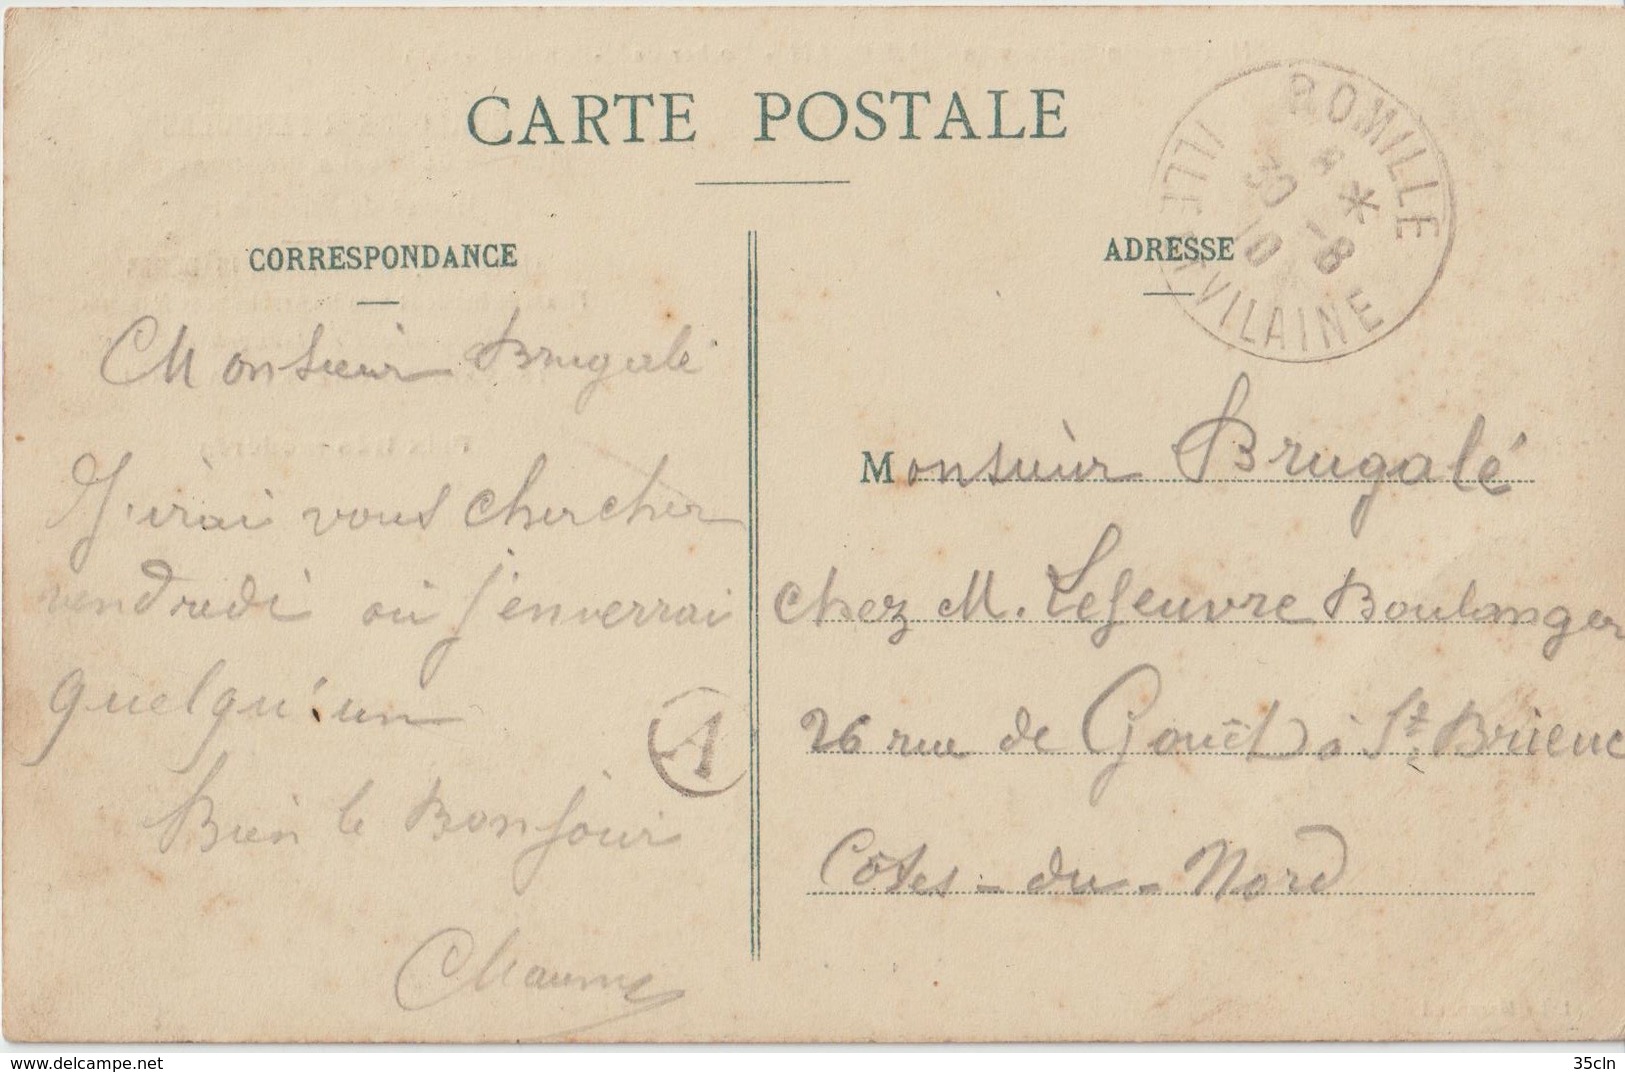 CARTE POSTALE
CORRESPONDANCE
Monsieur Brugalé
J'irai vous chercher
vendredi ou j'enverrai
quelqu'un
Bien le Bonjour
Chaume
A
ADRESSE
ROMILLE
8 *
30 -8
10
ILLE ET VILAINE
Monsieur Brugalé
chez M. Lefeuvre Boulanger
26 rue de Gouêt à St. Brieuc
Côtes-du-Nord
www.delcampe.net
35cln